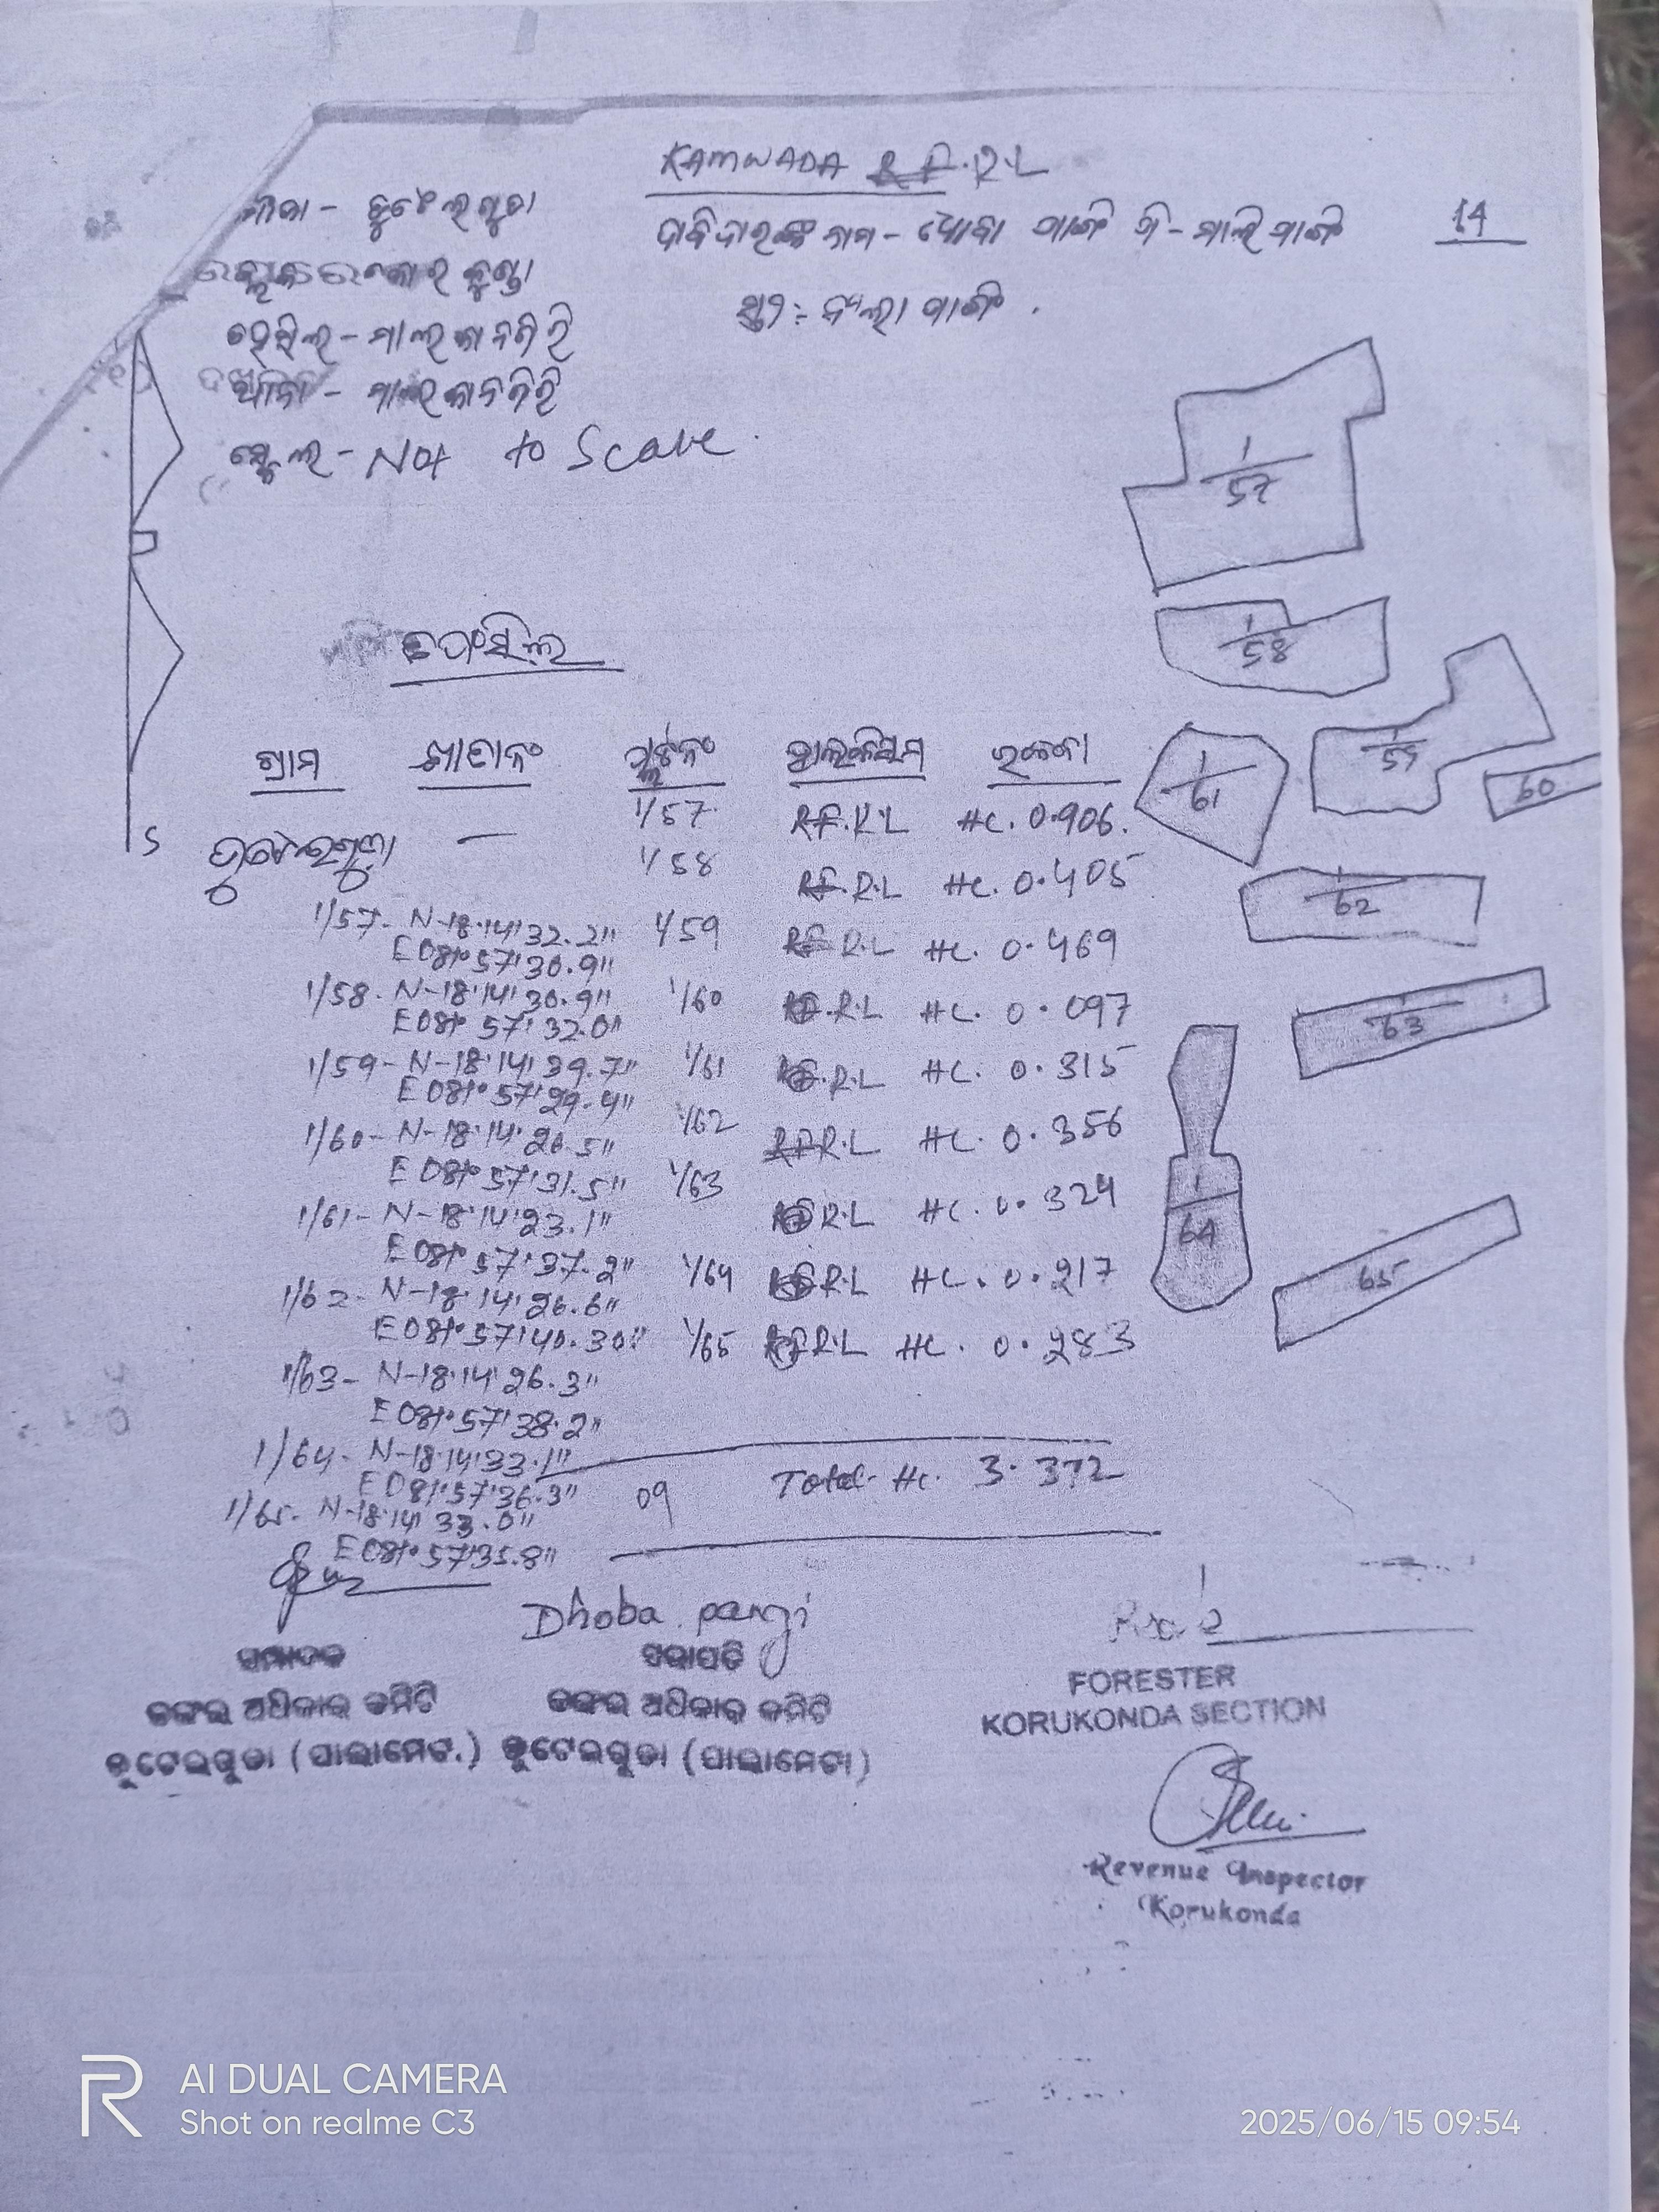 KAMWADA R.F.R.L
ମୌଜା - ଡୁଟେଲଗୁଡା
14
ଦାବିଦାରଙ୍କ ନାମ - ଧୋବା ପାଙ୍ଗି ପି - ମାଲି ପାଙ୍ଗି
ତହସିଲ - ମାଲକାନଗିରି
ଥାନା - ମାଲକାନଗିରି
ସ୍କେଲ - Not to Scale
1/57
1/58
1/59
60
1/61
1/62
1/63
1/64
65
S
ତପସିଲ
ଗ୍ରାମ ଖାତାନଂ ପ୍ଲଟନଂ ହାଲକିସମ ରକବା
1/57 R.F.R.L HC. 0.906.
— 1/58 R.F.R.L HC. 0.405
1/57- N-18°14'32.2" 1/59 R.F.R.L HC. 0.469
E081°57'30.9"
1/58- N-18°14'30.9" 1/60 R.F.R.L HC. 0.097
E081°57'32.0"
1/59- N-18°14'39.7" 1/61 R.F.R.L HC. 0.315
E081°57'29.4"
1/60- N-18°14'26.5" 1/62 R.F.R.L HC. 0.356
E081°57'31.5" 1/63 R.F.R.L HC. 0.324
1/61- N-18°14'23.1"
E081°57'37.2" 1/64 R.F.R.L HC. 0.217
1/62- N-18°14'26.6"
E081°57'40.30" 1/65 R.F.R.L HC. 0.283
1/63- N-18°14'26.3"
E081°57'38.2"
1/64- N-18°14'33.1"
E081°57'36.3" 09 Total- Hc. 3.372
1/65- N-18°14'33.0"
E081°57'35.8"
Dhoba pangi
ସମ୍ପାଦକ
ଜଙ୍ଗଲ ଅଧିକାର କମିଟି
ଡୁଟେଲଗୁଡା (ପାଲାମେଟ.)
ସଭାପତି
ଜଙ୍ଗଲ ଅଧିକାର କମିଟି
ଡୁଟେଲଗୁଡା (ପାଲାମେଟା)
FORESTER
KORUKONDA SECTION
Revenue Inspector
Korukonda
R
AI DUAL CAMERA
Shot on realme C3
2025/06/15 09:54